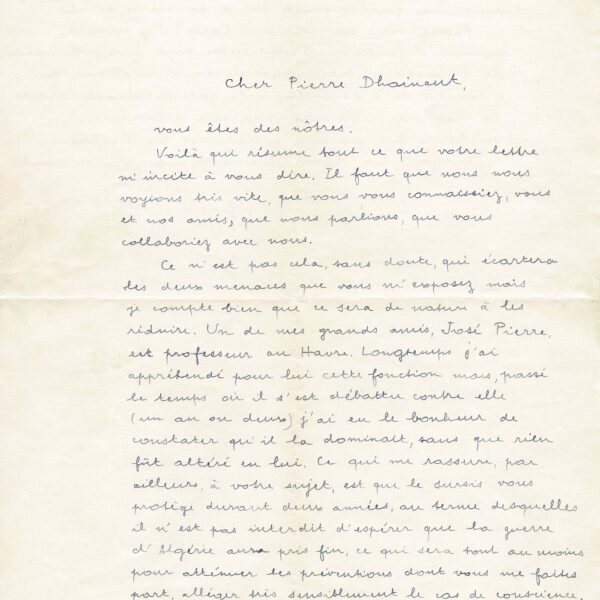 Cher Pierre Dhainaut,
vous êtes des nôtres.
Voilà qui résume tout ce que votre lettre
m'incite à vous dire. Il faut que nous nous
voyions très vite, que vous vous connaissiez, vous
et nos amis, que nous parlions, que vous
collaboriez avec nous.
Ce n'est pas cela, sans doute, qui écartera
les deux menaces que vous m'exposez mais
je compte bien que ce sera de nature à les
réduire. Un de mes grands amis, José Pierre,
est professeur au Havre. Longtemps j'ai
appréhendé pour lui cette fonction mais, passé
le temps où il s'est débattu contre elle
(un an ou deux) j'ai eu le bonheur de
constater qu'il la dominait, sans que rien
fût altéré en lui. Ce qui me rassure, par
ailleurs, à votre sujet, est que le sursis vous
protège durant deux années, au terme desquelles
il n'est pas interdit d'espérer que la guerre
d'Algérie aura pris fin, ce qui sera tout au moins
pour atténuer les préventions dont vous me faites
part, alléger très sensiblement le cas de conscience.